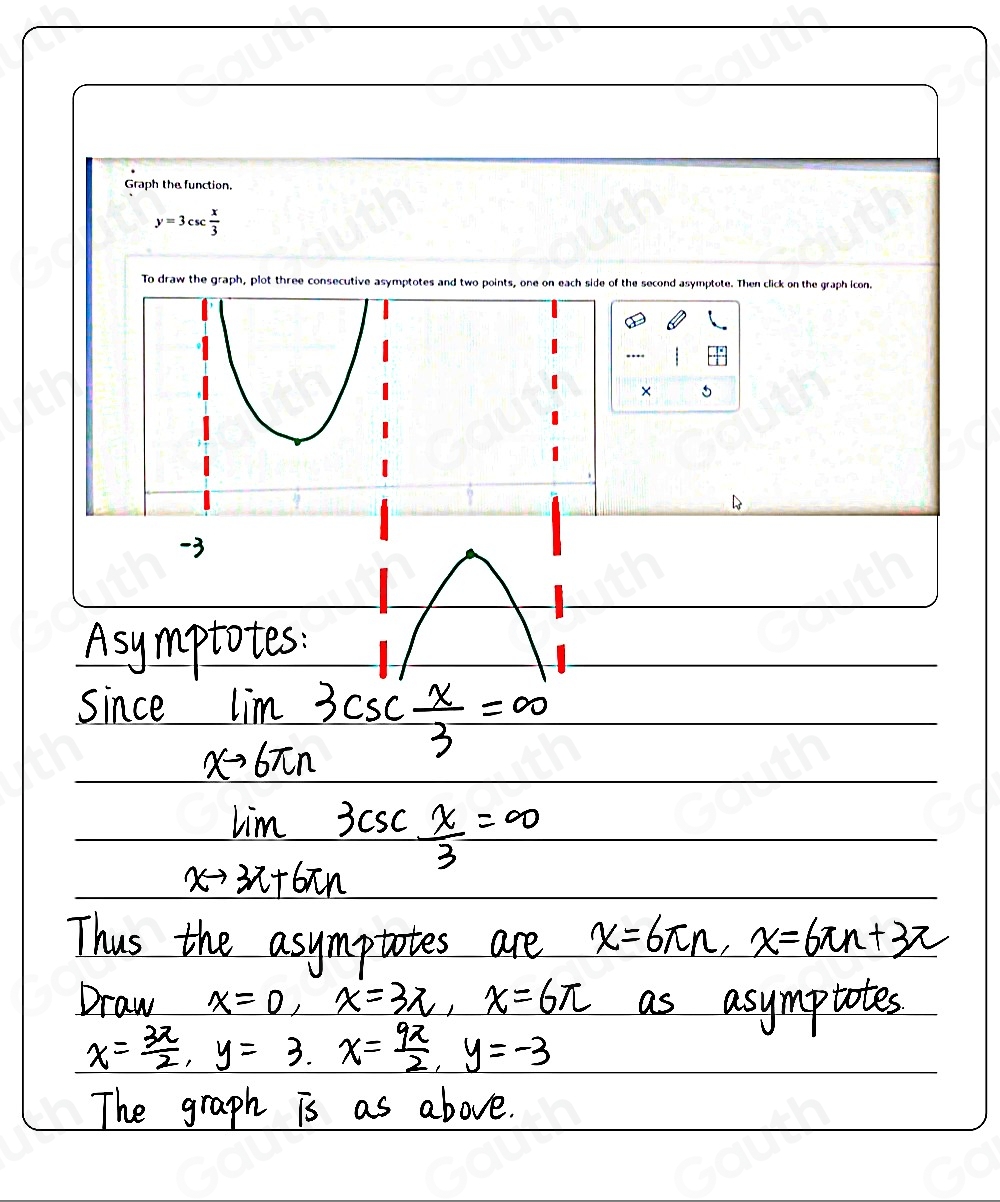 Graph the function.
y = 3 csc x/3
To draw the graph, plot three consecutive asymptotes and two points, one on each side of the second asymptote. Then click on the graph icon.
-3
Asymptotes:
Since lim 3csc x/3 = ∞
x→6πn
lim 3csc x/3 = ∞
x→3π+6πn
Thus the asymptotes are x=6πn, x=6πn+3π
Draw x=0, x=3π, x=6π as asymptotes.
x=3π/2, y= 3. x=9π/2, y=-3
The graph is as above.
Gauth